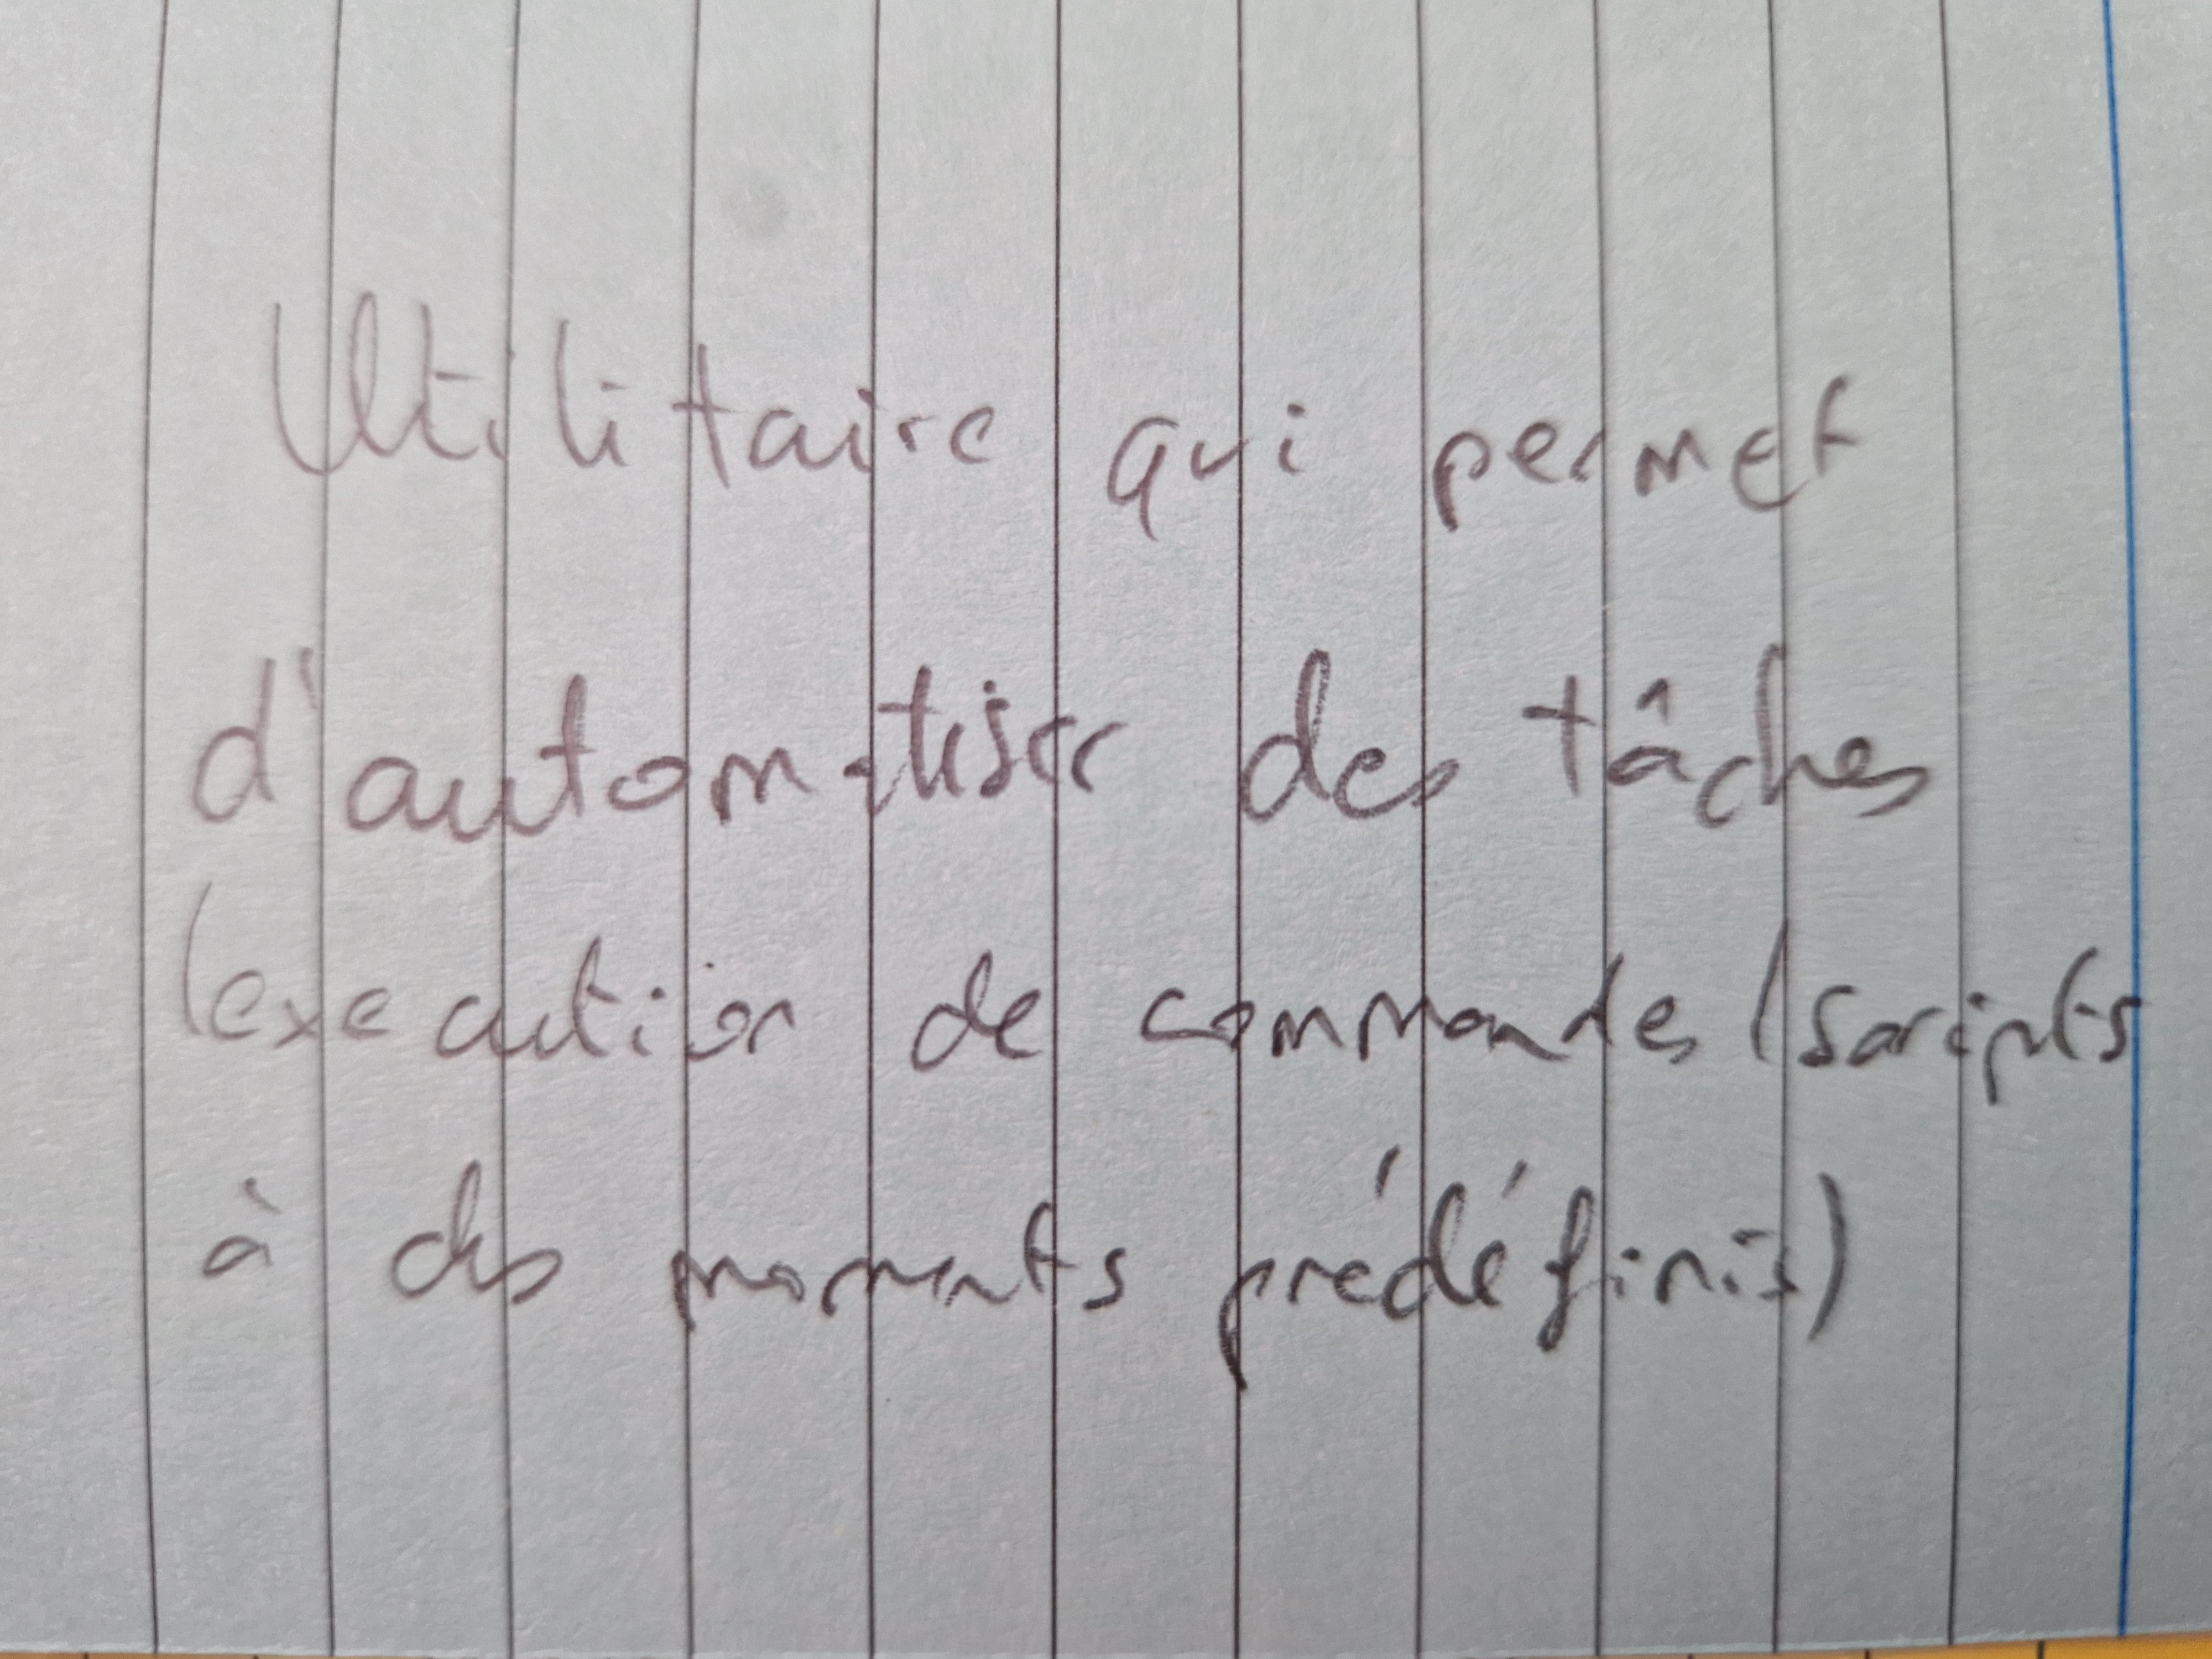 Utilitaire qui permet
d'automatiser des tâches
(exécution de commandes/scripts
à des moments prédéfinis)